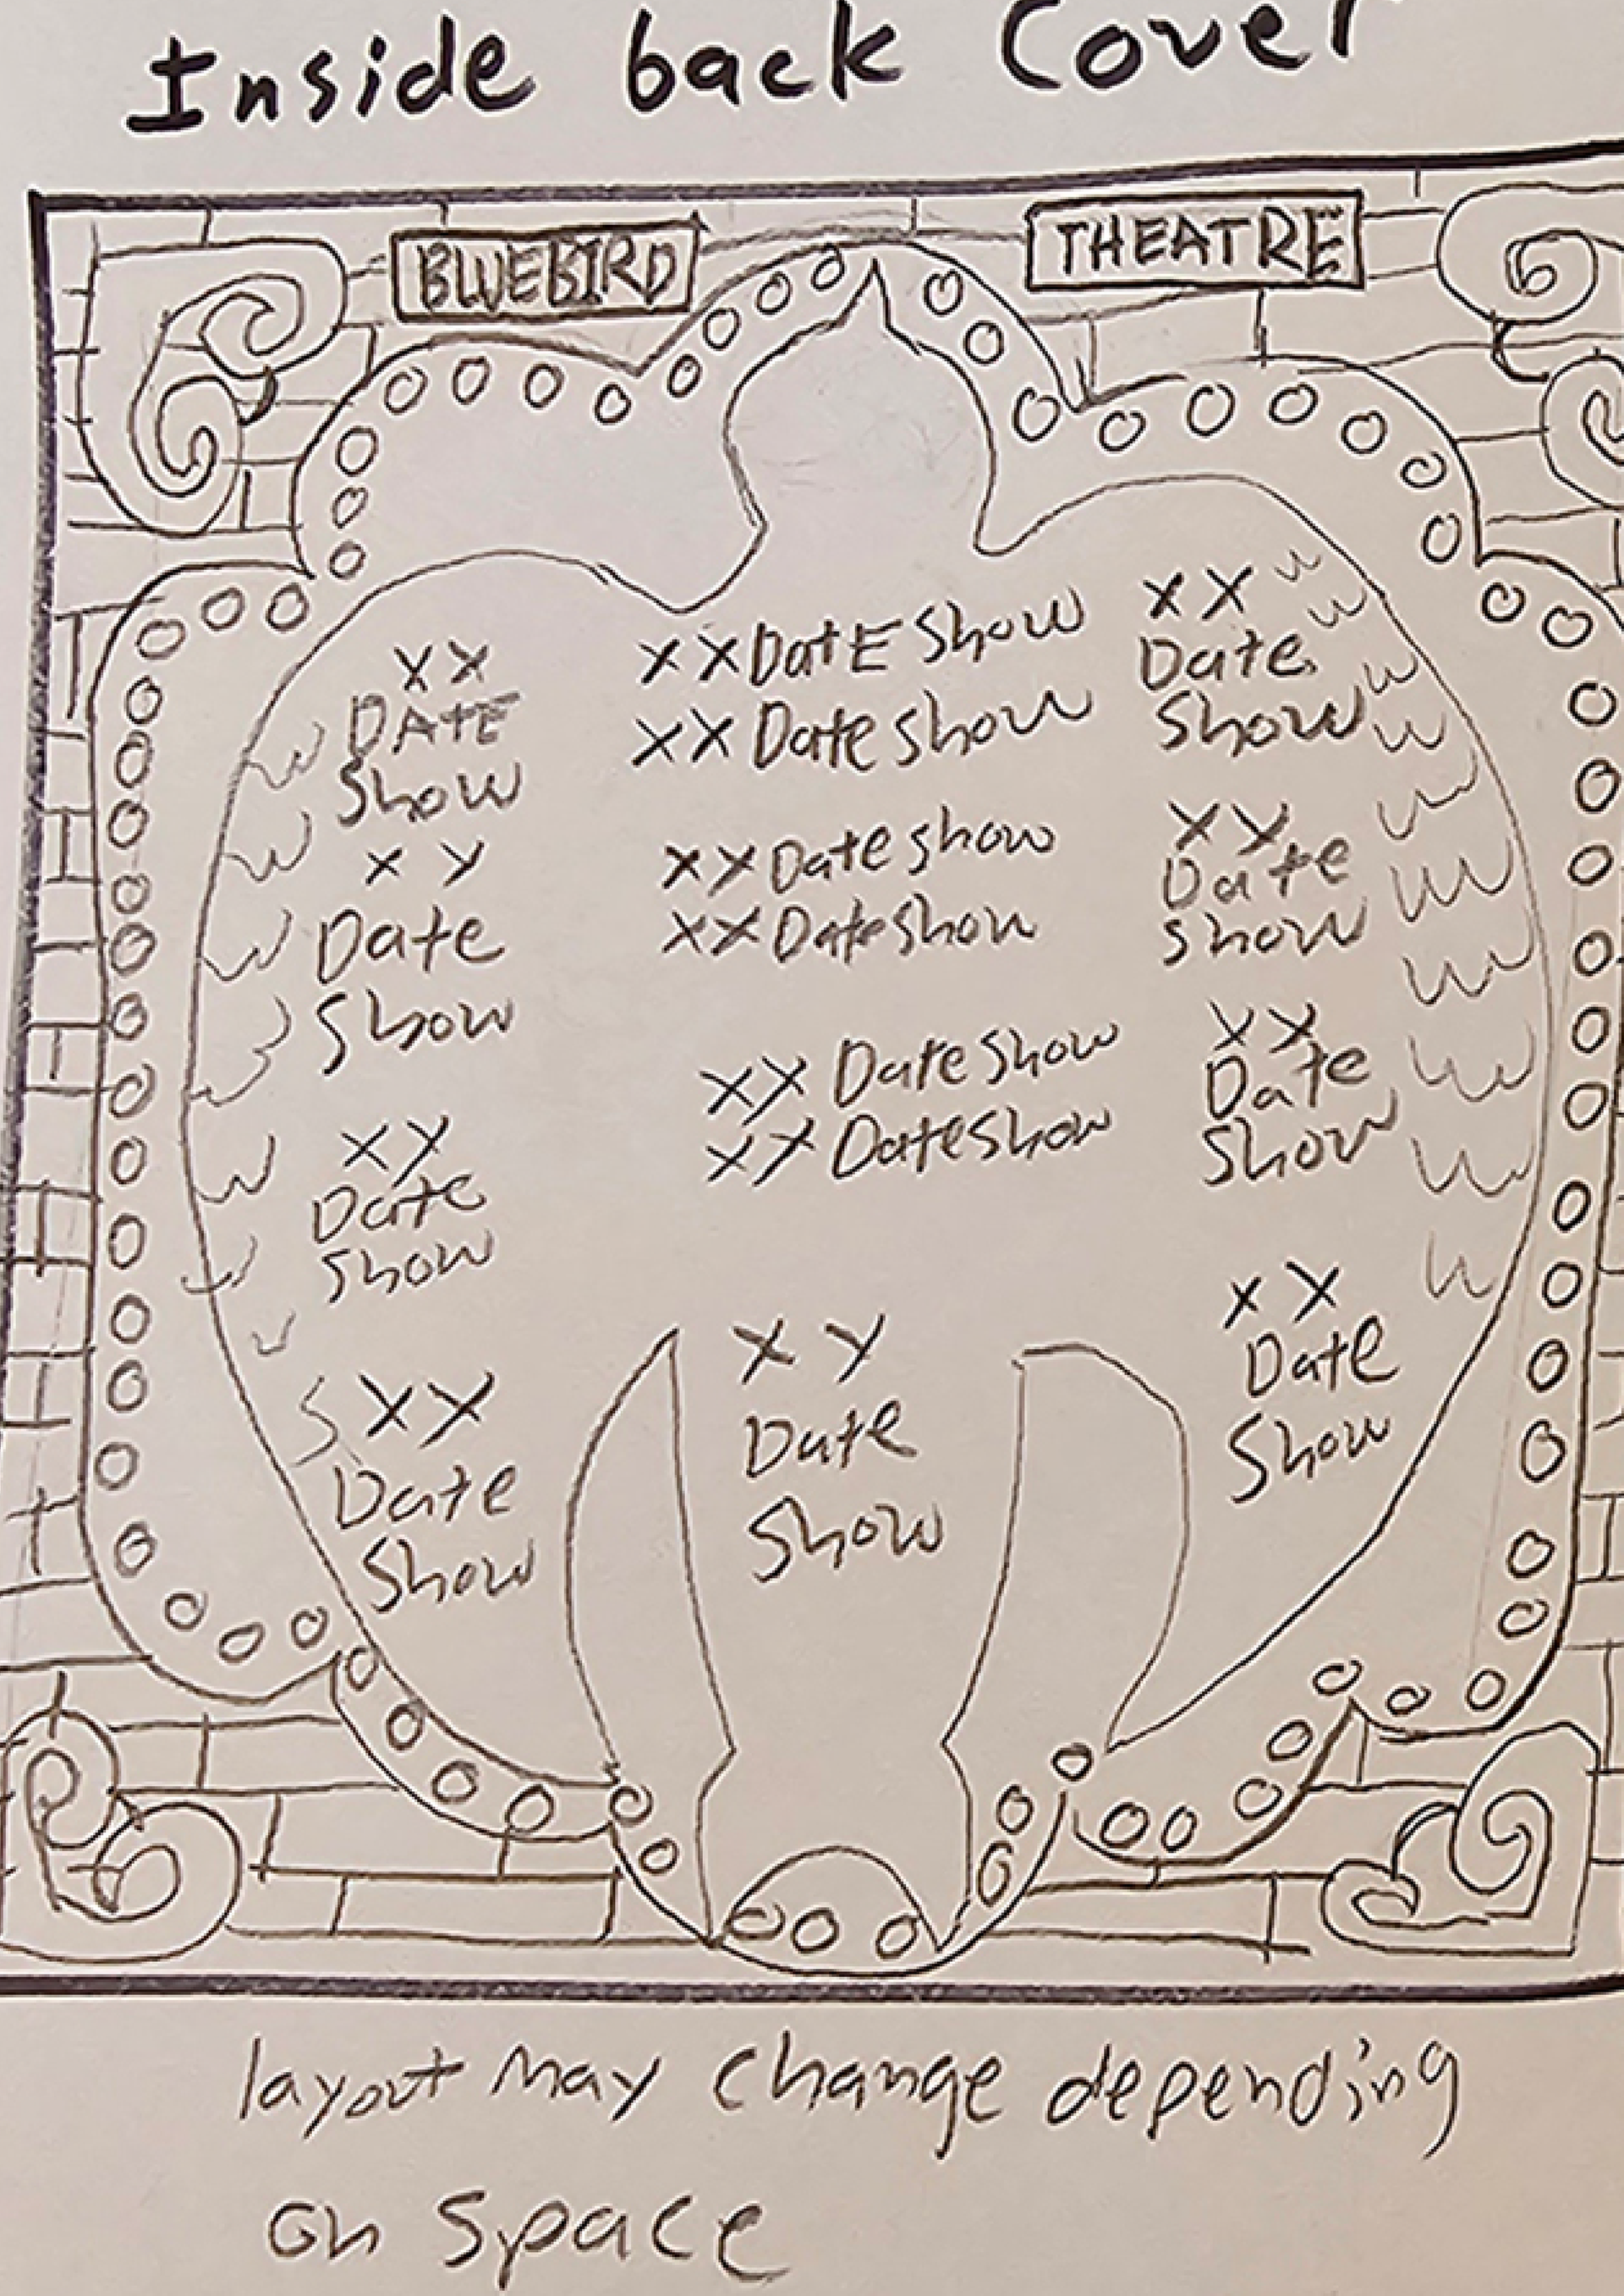 Inside back Cover
BLUEBIRD THEATRE
XX
DATE
Show
XY
Date
Show
XY
Date
Show
XX
Date
Show
XXDatE Show
XX Date show
XX Date show
XX Date show
XX Date Show
XX Date show
XY
Date
Show
XX
Date
Show
XX
Date
show
XX
Date
Show
XX
Date
Show
layout may change depending
on space